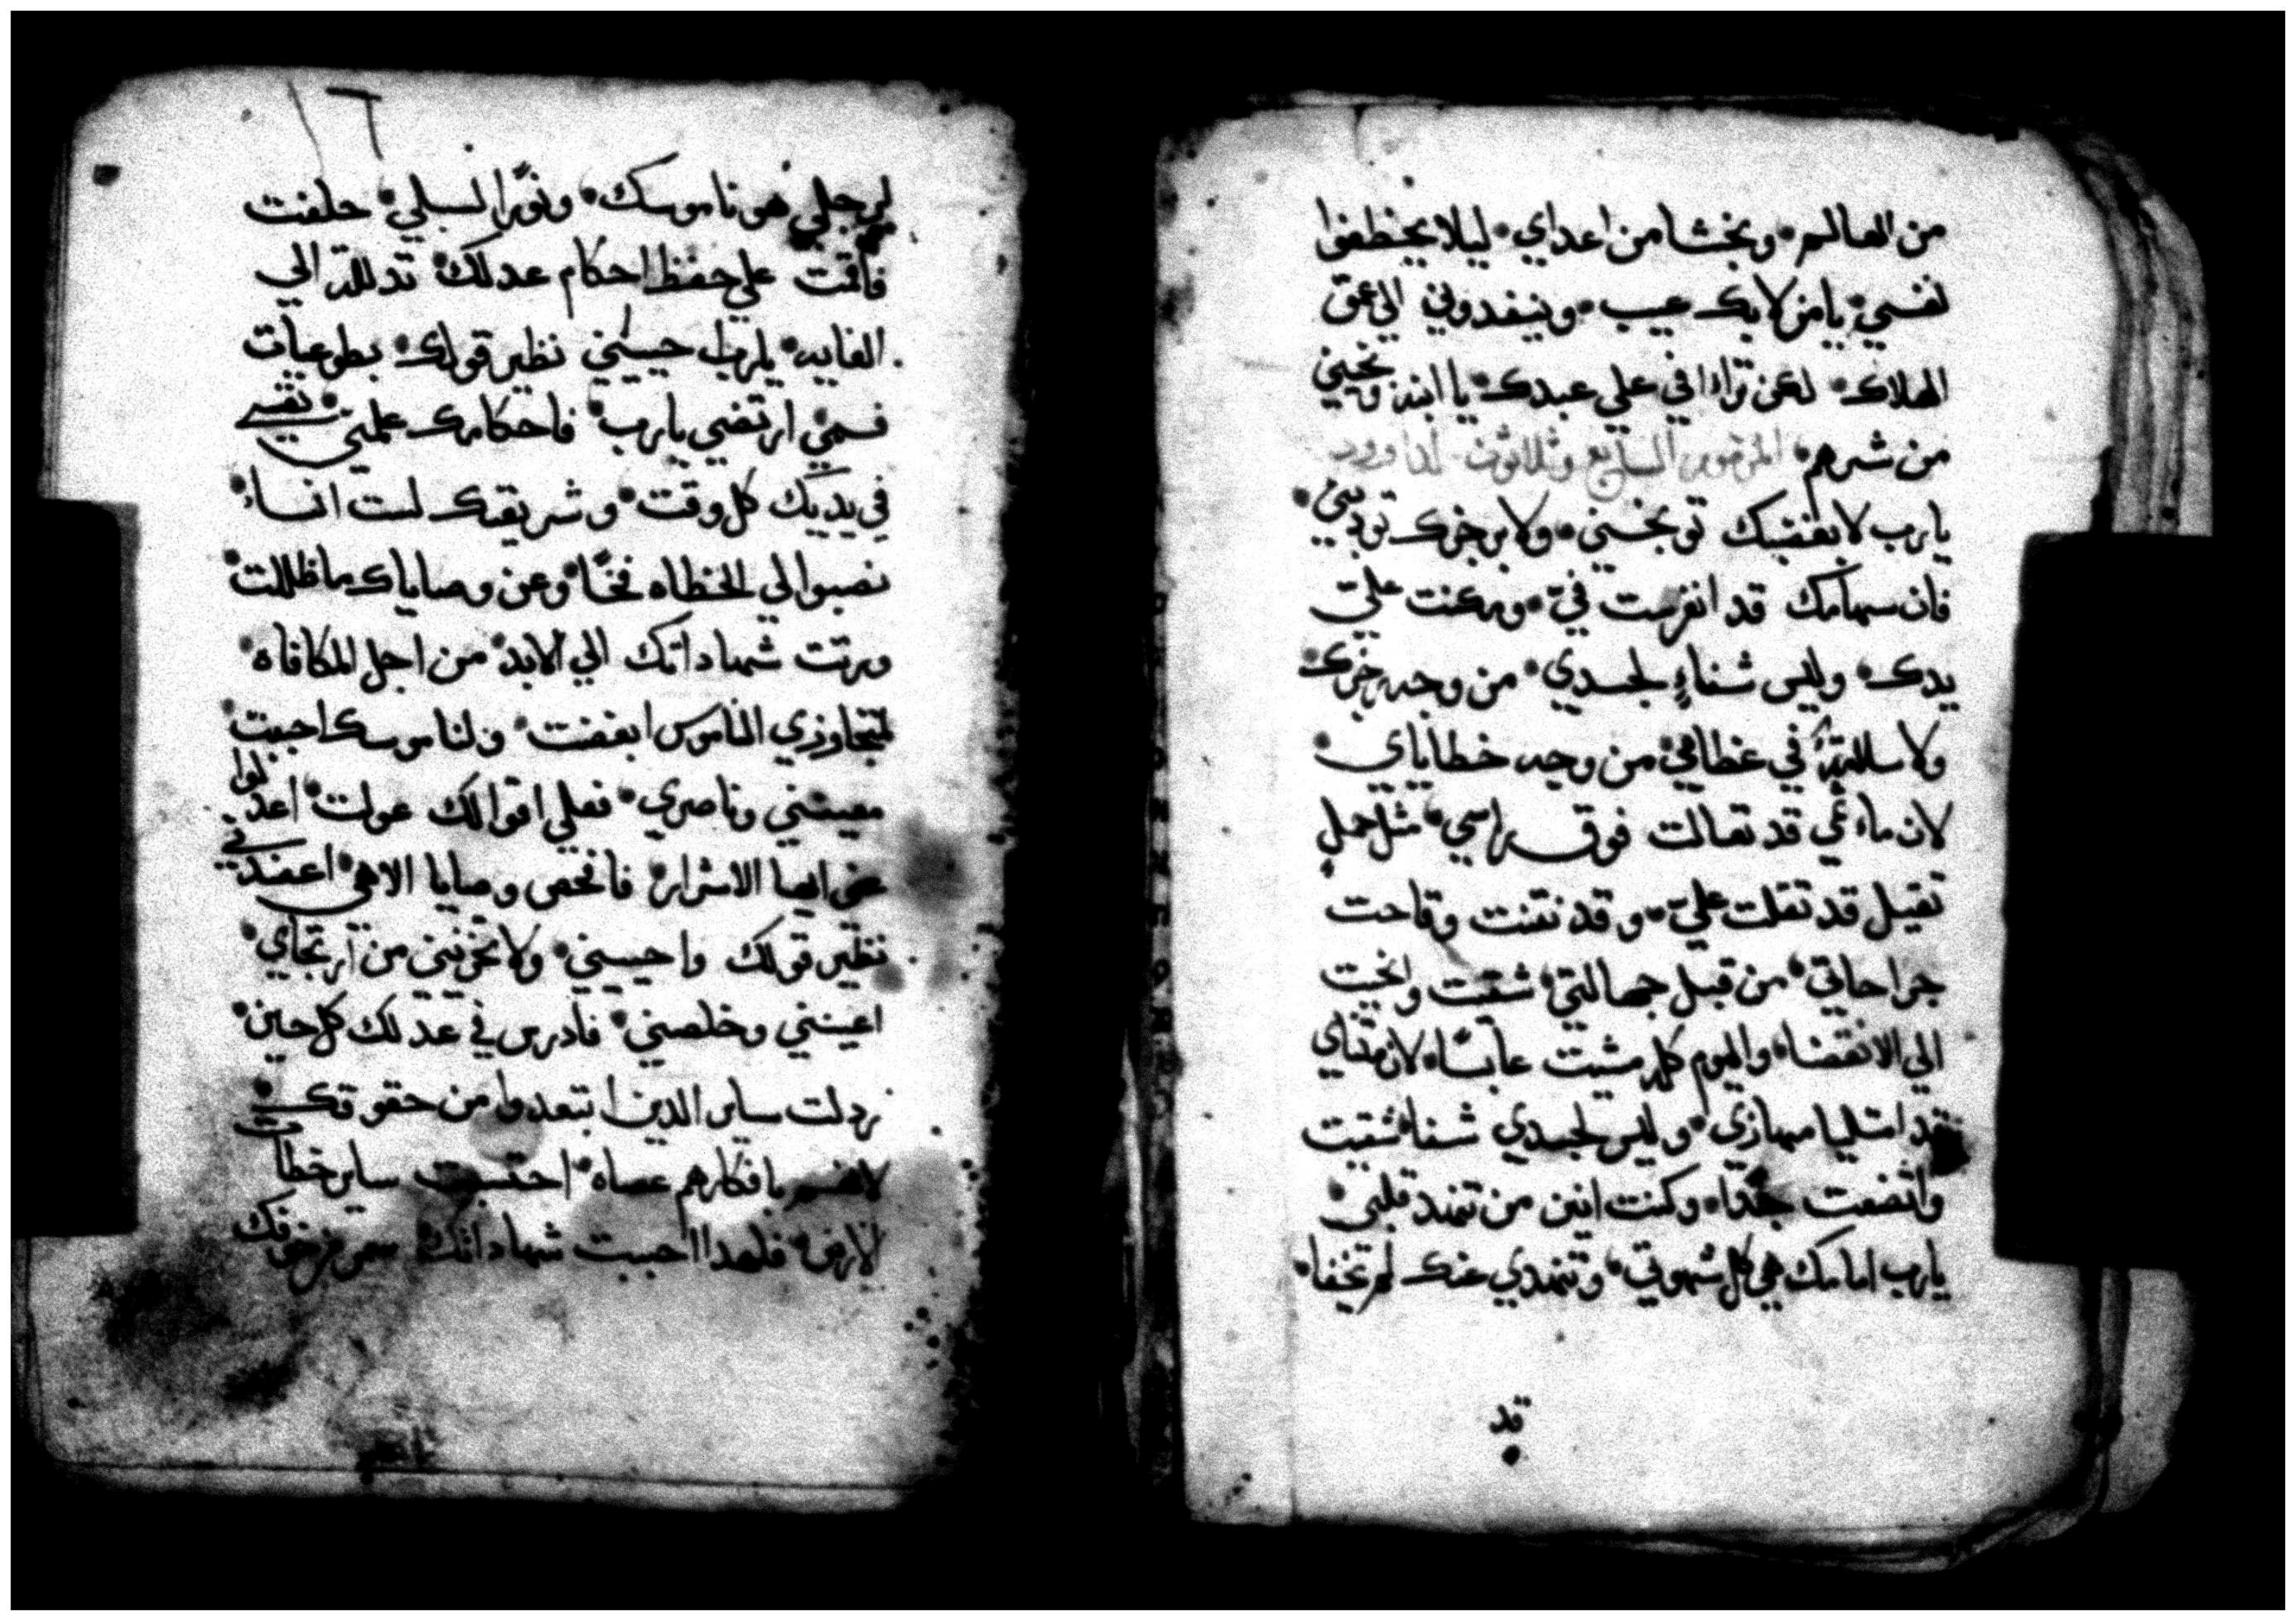 من العالم٠ ونجشا من اعداي٠ ليلا يخطفوا
نفسي٠ يا من لا يك عيب٠ وينفدوني الي عمق
الهلاك٠ لكن تراافي علي عبدك٠ يا ابنه ونجيني
من شرهم٠ المزمور السابع وثلاثون لداوود
يا رب لا بغضبك توبخني٠ ولا برجزك تودبني٠
فان سهامك قد انغرست في٠ ومكنت علي
يدك٠ وليس شفاءٍ لجسدي٠ من وجه رجزك٠
ولا سلامة في عظامي٠ من وجه خطاياي٠
لان ماءثمي قد تعالت فوق راسي٠ مثل حمل
تقيل قد تقلت علي٠ وقد نتنت وقاحت
جراحاتي٠ من قبل جهالتي٠ شقيت وانحيت
الي الانقضاء٠ واليوم كله مشيت عابسًا٠ لان متناي
قد امتليا مهازي٠ وليس لجسدي شفا٠ شقيت
واتضعت جدًا٠ وكنت اين من تنهد قلبي٠
يا رب امامك هي كل شهوتي٠ وتنهدي عنك لم تخفا٠
قد
لرجلي هو ناموسك٠ ونورًا لسبلي٠ حلفت
فاقمت علي حفظ احكام عدلك٠ تدللت الي
الغايه٠ يا رب احييني نظير قولك٠ بطوعيات
فمي ارتضي يا رب٠ فاحكامك علمني٠ نفسي
في يديك كل وقت٠ وشريعتك لست انساء٠
نصبوا لي الخطاه فخًا٠ وعن وصاياك ما ظللت٠
ورتت شهاداتك الي الابد٠ من اجل المكافاه٠
لمتجاوزي الناموس ابغضت٠ ولناموسك احببت٠
معيني وناصري٠ فعلي اقوالك عولت٠ اعدلوا
عني ايها الاشرار٠ فافحص وصايا الاهي٠ اعضدني
نظير قولك واحييني٠ ولا تخزيني من ارتجاي٠
اعينني وخلصني٠ فادرس في عدلك كل حين٠
ردلت ساير الدين ابتعدوا من حقوقك٠
لانهم بافكارهم عصاه٠ احتسبت ساير خطاة
الارض٠ فلهدا احببت شهاداتك٠ سمر من خوفك